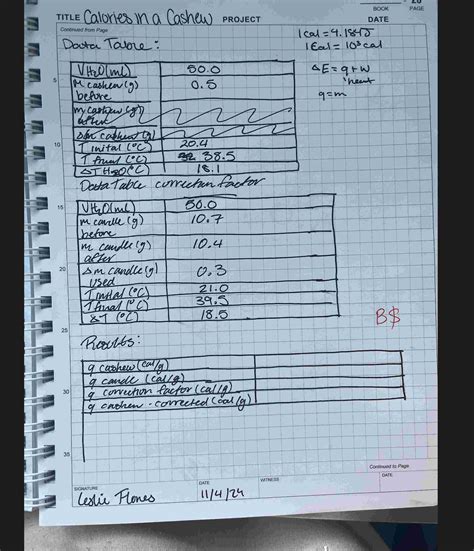 20
BOOK PAGE
TITLE Calories in a Cashew PROJECT DATE
Continued from Page
1 cal = 4.184J
1 Cal = 10³ cal
Data Table:
ΔE = q + w
heat
q = m
5
V H2O (mL) 50.0
m cashew (g) before 0.5
m cashew (g) after
Δm cashew (g)
10
T inital (°C) 20.4
T final (°C) 38.5
ΔT H2O (°C) 18.1
Data Table correction factor
15
V H2O (mL) 50.0
m candle (g) before 10.7
m candle (g) after 10.4
20
Δm candle (g) used 0.3
T initial (°C) 21.0
T final (°C) 39.5
ΔT (°C) 18.5
B$
25
Results:
q cashew (cal/g)
q candle (cal/g)
30
q correction factor (cal/g)
q cashew - corrected (cal/g)
35
Continued to Page
SIGNATURE DATE WITNESS DATE
Leslie Flores 11/4/24